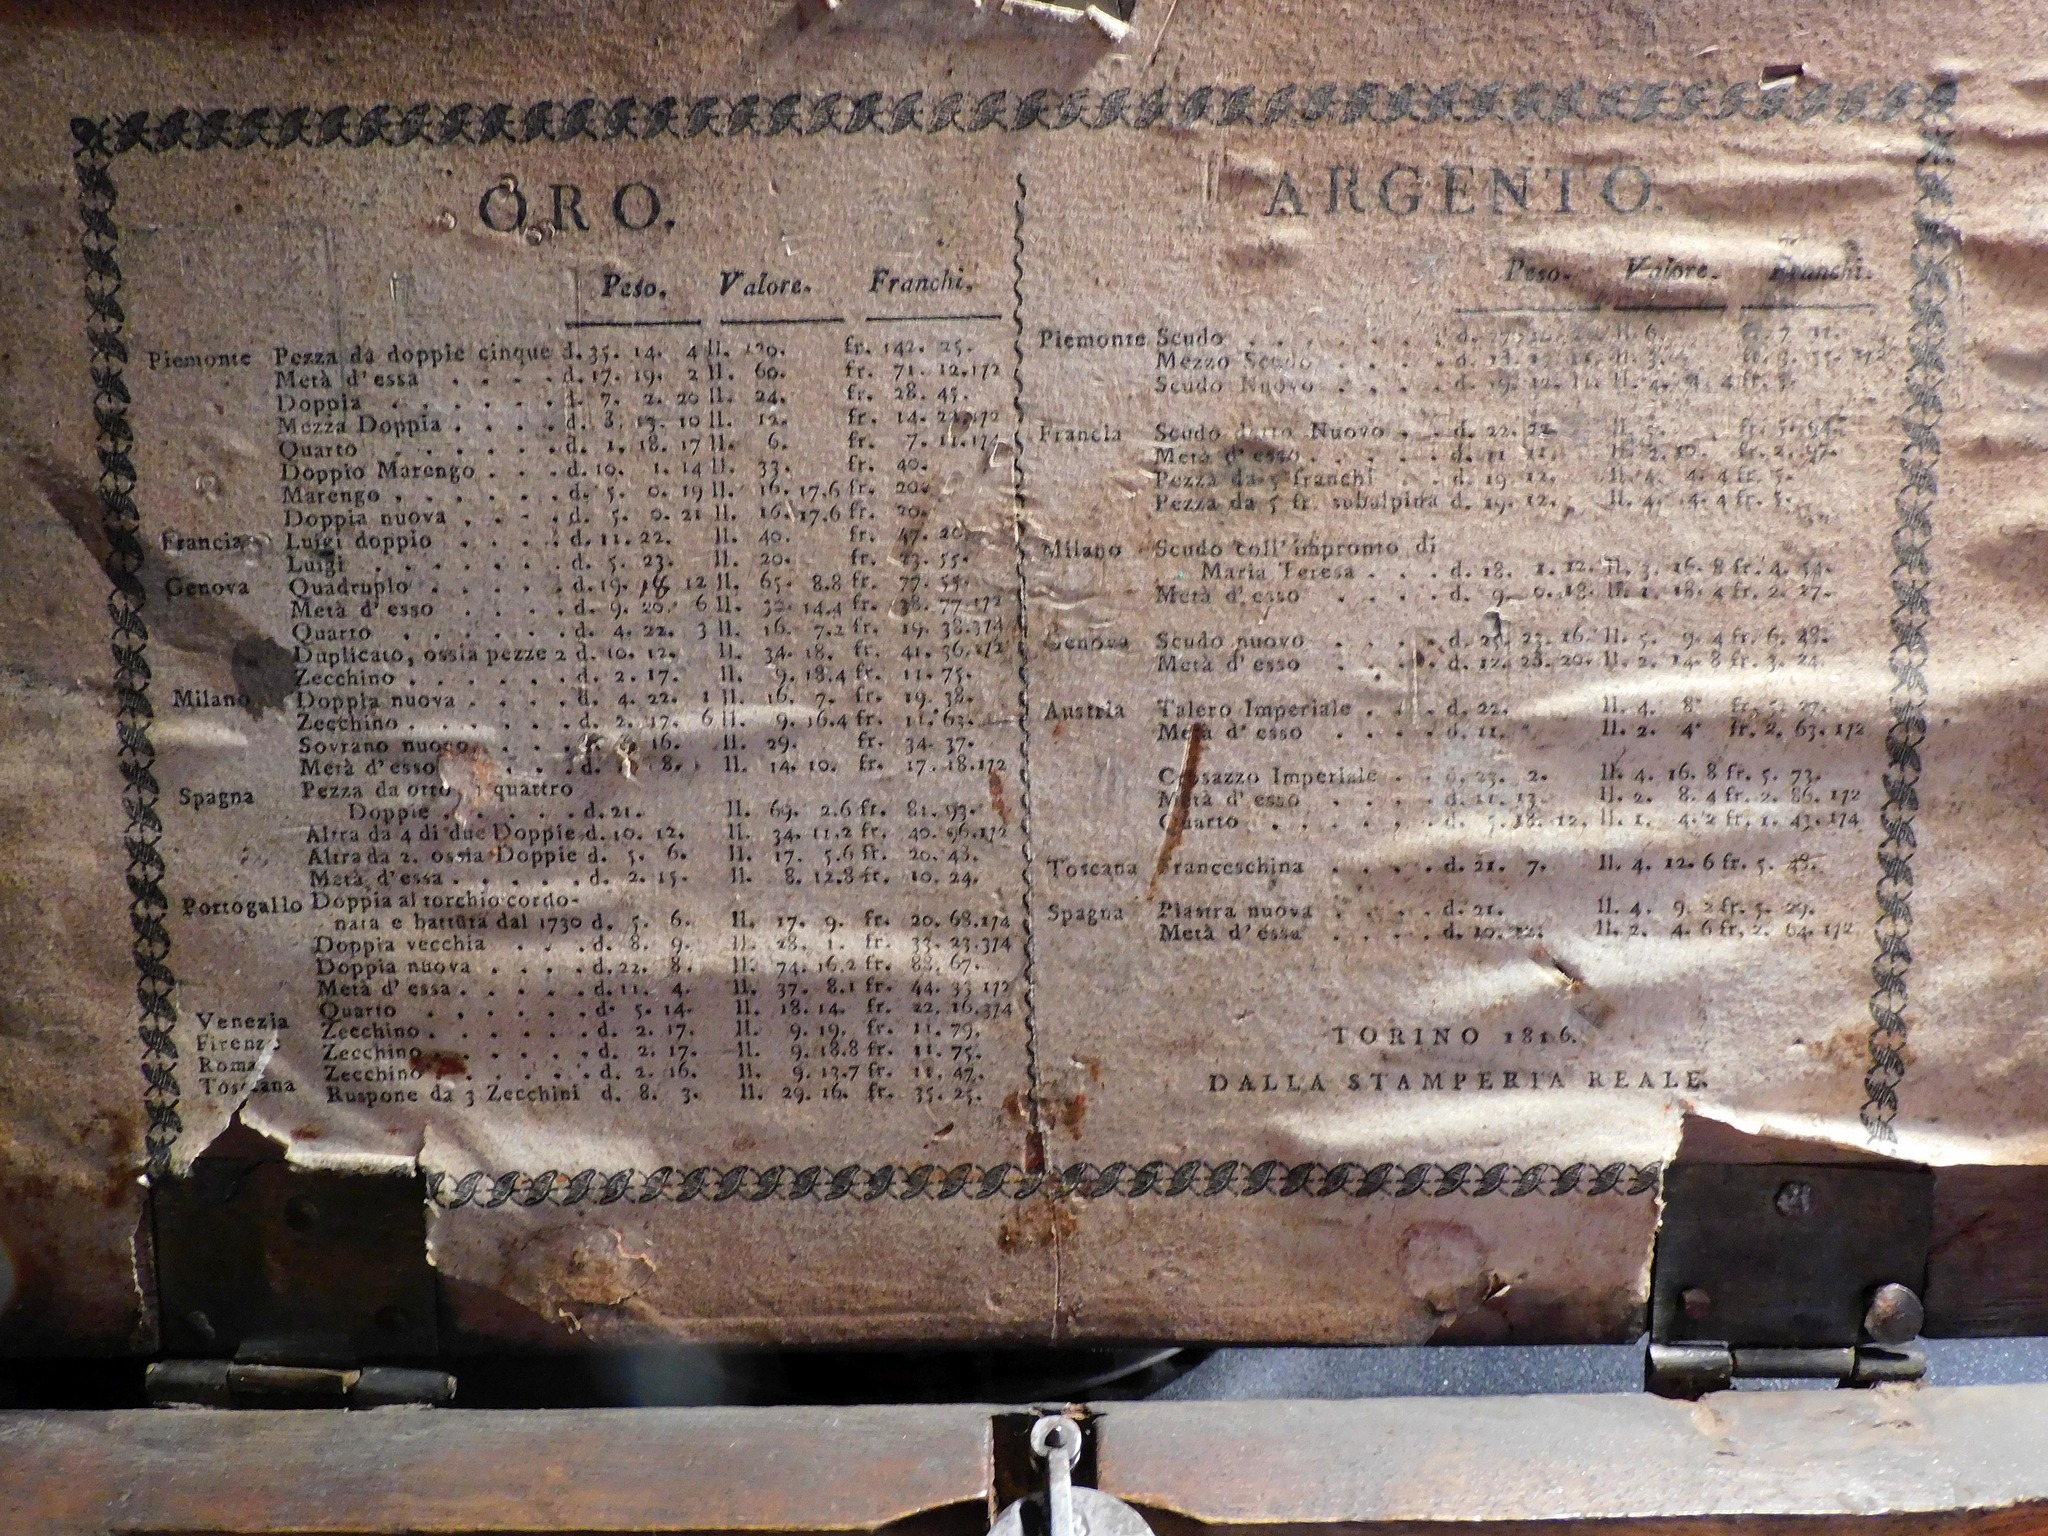 ORO.
Peso. Valore. Franchi.
Piemonte Pezza da doppie cinque d. 35. 14. 4 ll. 120. fr. 142. 25.
Metà d'essa . . . . d. 17. 19. 2 ll. 60. fr. 71. 12.1/2
Doppia . . . . . . d. 7. 2. 20 ll. 24. fr. 28. 45.
Mezza Doppia . . . . d. 3. 13. 10 ll. 12. fr. 14. 22.1/2
Quarto . . . . . . d. 1. 18. 17 ll. 6. fr. 7. 11.1/4
Doppio Marengo . . . d. 10. 1. 14 ll. 33. fr. 40.
Marengo . . . . . . d. 5. 0. 19 ll. 16. 17.6 fr. 20.
Doppia nuova . . . . d. 5. 0. 21 ll. 16. 17.6 fr. 20.
Francia Luigi doppio . . . . d. 11. 22. ll. 40. fr. 47. 20.
Luigi . . . . . . . d. 5. 23. ll. 20. fr. 23. 55.
Genova Quadruplo . . . . . d. 19. 16 12 ll. 65. 8.8 fr. 77. 55.
Metà d'esso . . . . d. 9. 20. 6 ll. 32. 14.4 fr. 38. 77.1/2
Quarto . . . . . . d. 4. 22. 3 ll. 16. 7.2 fr. 19. 38.3/4
Duplicato, ossia pezze 2 d. 10. 12. ll. 34. 18. fr. 41. 36.1/2
Zecchino . . . . . . d. 2. 17. ll. 9. 18.4 fr. 11. 75.
Milano Doppia nuova . . . . d. 4. 22. 1 ll. 16. 7. fr. 19. 38.
Zecchino . . . . . . d. 2. 17. 6 ll. 9. 16.4 fr. 11. 63.
Sovrano nuovo . . . 16. ll. 29. fr. 34. 37.
Metà d'esso . . . d. 8. ll. 14. 10. fr. 17. 18.1/2
Spagna Pezza da otto quattro
Doppie . . . . . d. 21. ll. 69. 2.6 fr. 81. 93.
Altra da 4 di due Doppie d. 10. 12. ll. 34. 11.2 fr. 40. 96.1/2
Altra da 2. ossia Doppie d. 5. 6. ll. 17. 5.6 fr. 20. 48.
Metà d'essa . . . . . d. 2. 15. ll. 8. 12.8 fr. 10. 24.
Portogallo Doppia al torchio cordo-
nata e battuta dal 1730 d. 5. 6. ll. 17. 9. fr. 20. 68.1/4
Doppia vecchia . . . d. 8. 9. ll. 28. 1. fr. 33. 23.3/4
Doppia nuova . . . . d. 22. 8. ll. 74. 16.2 fr. 88. 67.
Metà d'essa . . . . . d. 11. 4. ll. 37. 8.1 fr. 44. 33 1/2
Quarto . . . . . . d. 5. 14. ll. 18. 14. fr. 22. 16.3/4
Venezia Zecchino . . . . . . d. 2. 17. ll. 9. 19. fr. 11. 79.
Firenze Zecchino . . . . . . d. 2. 17. ll. 9. 18.8 fr. 11. 75.
Roma Zecchino . . . . . d. 2. 16. ll. 9. 13.7 fr. 11. 47.
Toscana Ruspone da 3 Zecchini d. 8. 3. ll. 29. 16. fr. 35. 25.
ARGENTO.
Peso. Valore. Franchi.
Piemonte Scudo . . . . . . d. ll. 6. fr. 7. 11.
Mezzo Scudo . . . . d. ll. 3. fr.
Scudo Nuovo . . . . d. 19. 12. ll. 4. 4. 4 fr. 5.
Francia Scudo detto Nuovo . . d. 22. 22 ll. 5. fr. 5. 94.
Metà d'esso . . . . . d. 11 11. ll. 2. 10. fr. 2. 97.
Pezza da 5 franchi . . d. 19. 12. ll. 4. 4. 4 fr. 5.
Pezza da 5 fr. subalpina d. 19. 12. ll. 4. 4.4 fr. 5.
Milano Scudo coll'impronto di
Maria Teresa . . . d. 18. 1. 12. ll. 3. 16. 8 fr. 4. 54.
Metà d'esso . . . . d. 9. 0. 18. ll. 1. 18. 4 fr. 2. 27.
Genova Scudo nuovo . . . . d. 25. 23. 16. ll. 5. 9. 4 fr. 6. 48.
Metà d'esso . . . . d. 12. 23. 20. ll. 2. 14. 8 fr. 3. 24.
Austria Talero Imperiale . . . d. 22. ll. 4. 8. fr. 5. 27.
Metà d'esso . . . . d. 11. ll. 2. 4. fr. 2. 63. 1/2
Crosazzo Imperiale . . d. 23. 2. ll. 4. 16. 8 fr. 5. 73.
Metà d'esso . . . . d. 11. 13. ll. 2. 8. 4 fr. 2. 86. 1/2
Quarto . . . . . . d. 5. 18. 12. ll. 1. 4. 2 fr. 1. 43. 1/4
Toscana Franceschina . . . . d. 21. 7. ll. 4. 12. 6 fr. 5. 48.
Spagna Piastra nuova . . . . d. 21. ll. 4. 9. 2 fr. 5. 29.
Metà d'essa . . . . d. 10. 12. ll. 2. 4. 6 fr. 2. 64. 1/2
TORINO 1816.
DALLA STAMPERIA REALE.